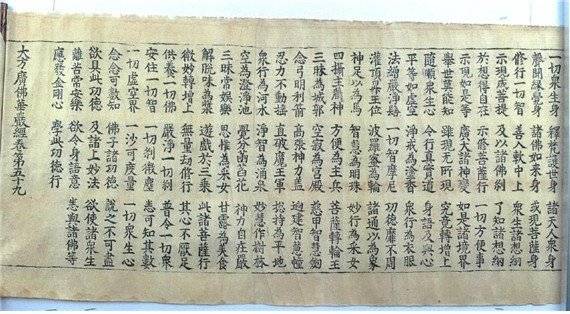 一切衆生身　釋梵護世身　諸天人衆身
聲聞緣覺身　諸佛如來身　或現菩薩身
修行一切智　善入軟中上　衆生諸想網
示現成菩提　及以諸佛刹　了知諸想網
於想得自在　示修菩薩行　一切方便事
示現如是等　廣大諸神變　如是諸境界
舉世莫能知　雖現無所現　究竟轉增上
隨順衆生心　令行真實道　身語及與心
平等如虛空　淨戒為塗香　衆行為衣服
法繒嚴淨髻　一切智摩尼　功德靡不周
灌頂昇王位　波羅蜜為輪　諸通以為象
神足以為馬　智慧為明珠　妙行為采女
四攝主藏神　方便為主兵　菩薩轉輪王
三昧為城郭　空寂為宮殿　慈甲智慧劒
念弓明利箭　高張神力蓋　迥建智慧幢
忍力不動搖　直破魔王軍　揔持為平地
衆行為河水　淨智為涌泉　妙慧作樹林
空為澄淨池　覺分菡萏花　神力自莊嚴
三昧常娛樂　思惟為采女　甘露為美食
解脫味為漿　遊戲於三乘　此諸菩薩行
微妙轉增上　無量劫修行　其心不厭足
供養一切佛　嚴淨一切刹　普令一切衆
安住一切智　一切刹微塵　悉可知其數
一切虛空界　一沙可度量　一切衆生心
念念可數知　佛子諸功德　說之不可盡
欲具此功德　及諸上妙法　欲使諸衆生
離苦常安樂　欲令身語意　悉與諸佛等
應發金剛心　學此功德行
大方廣佛華嚴經卷第五十九